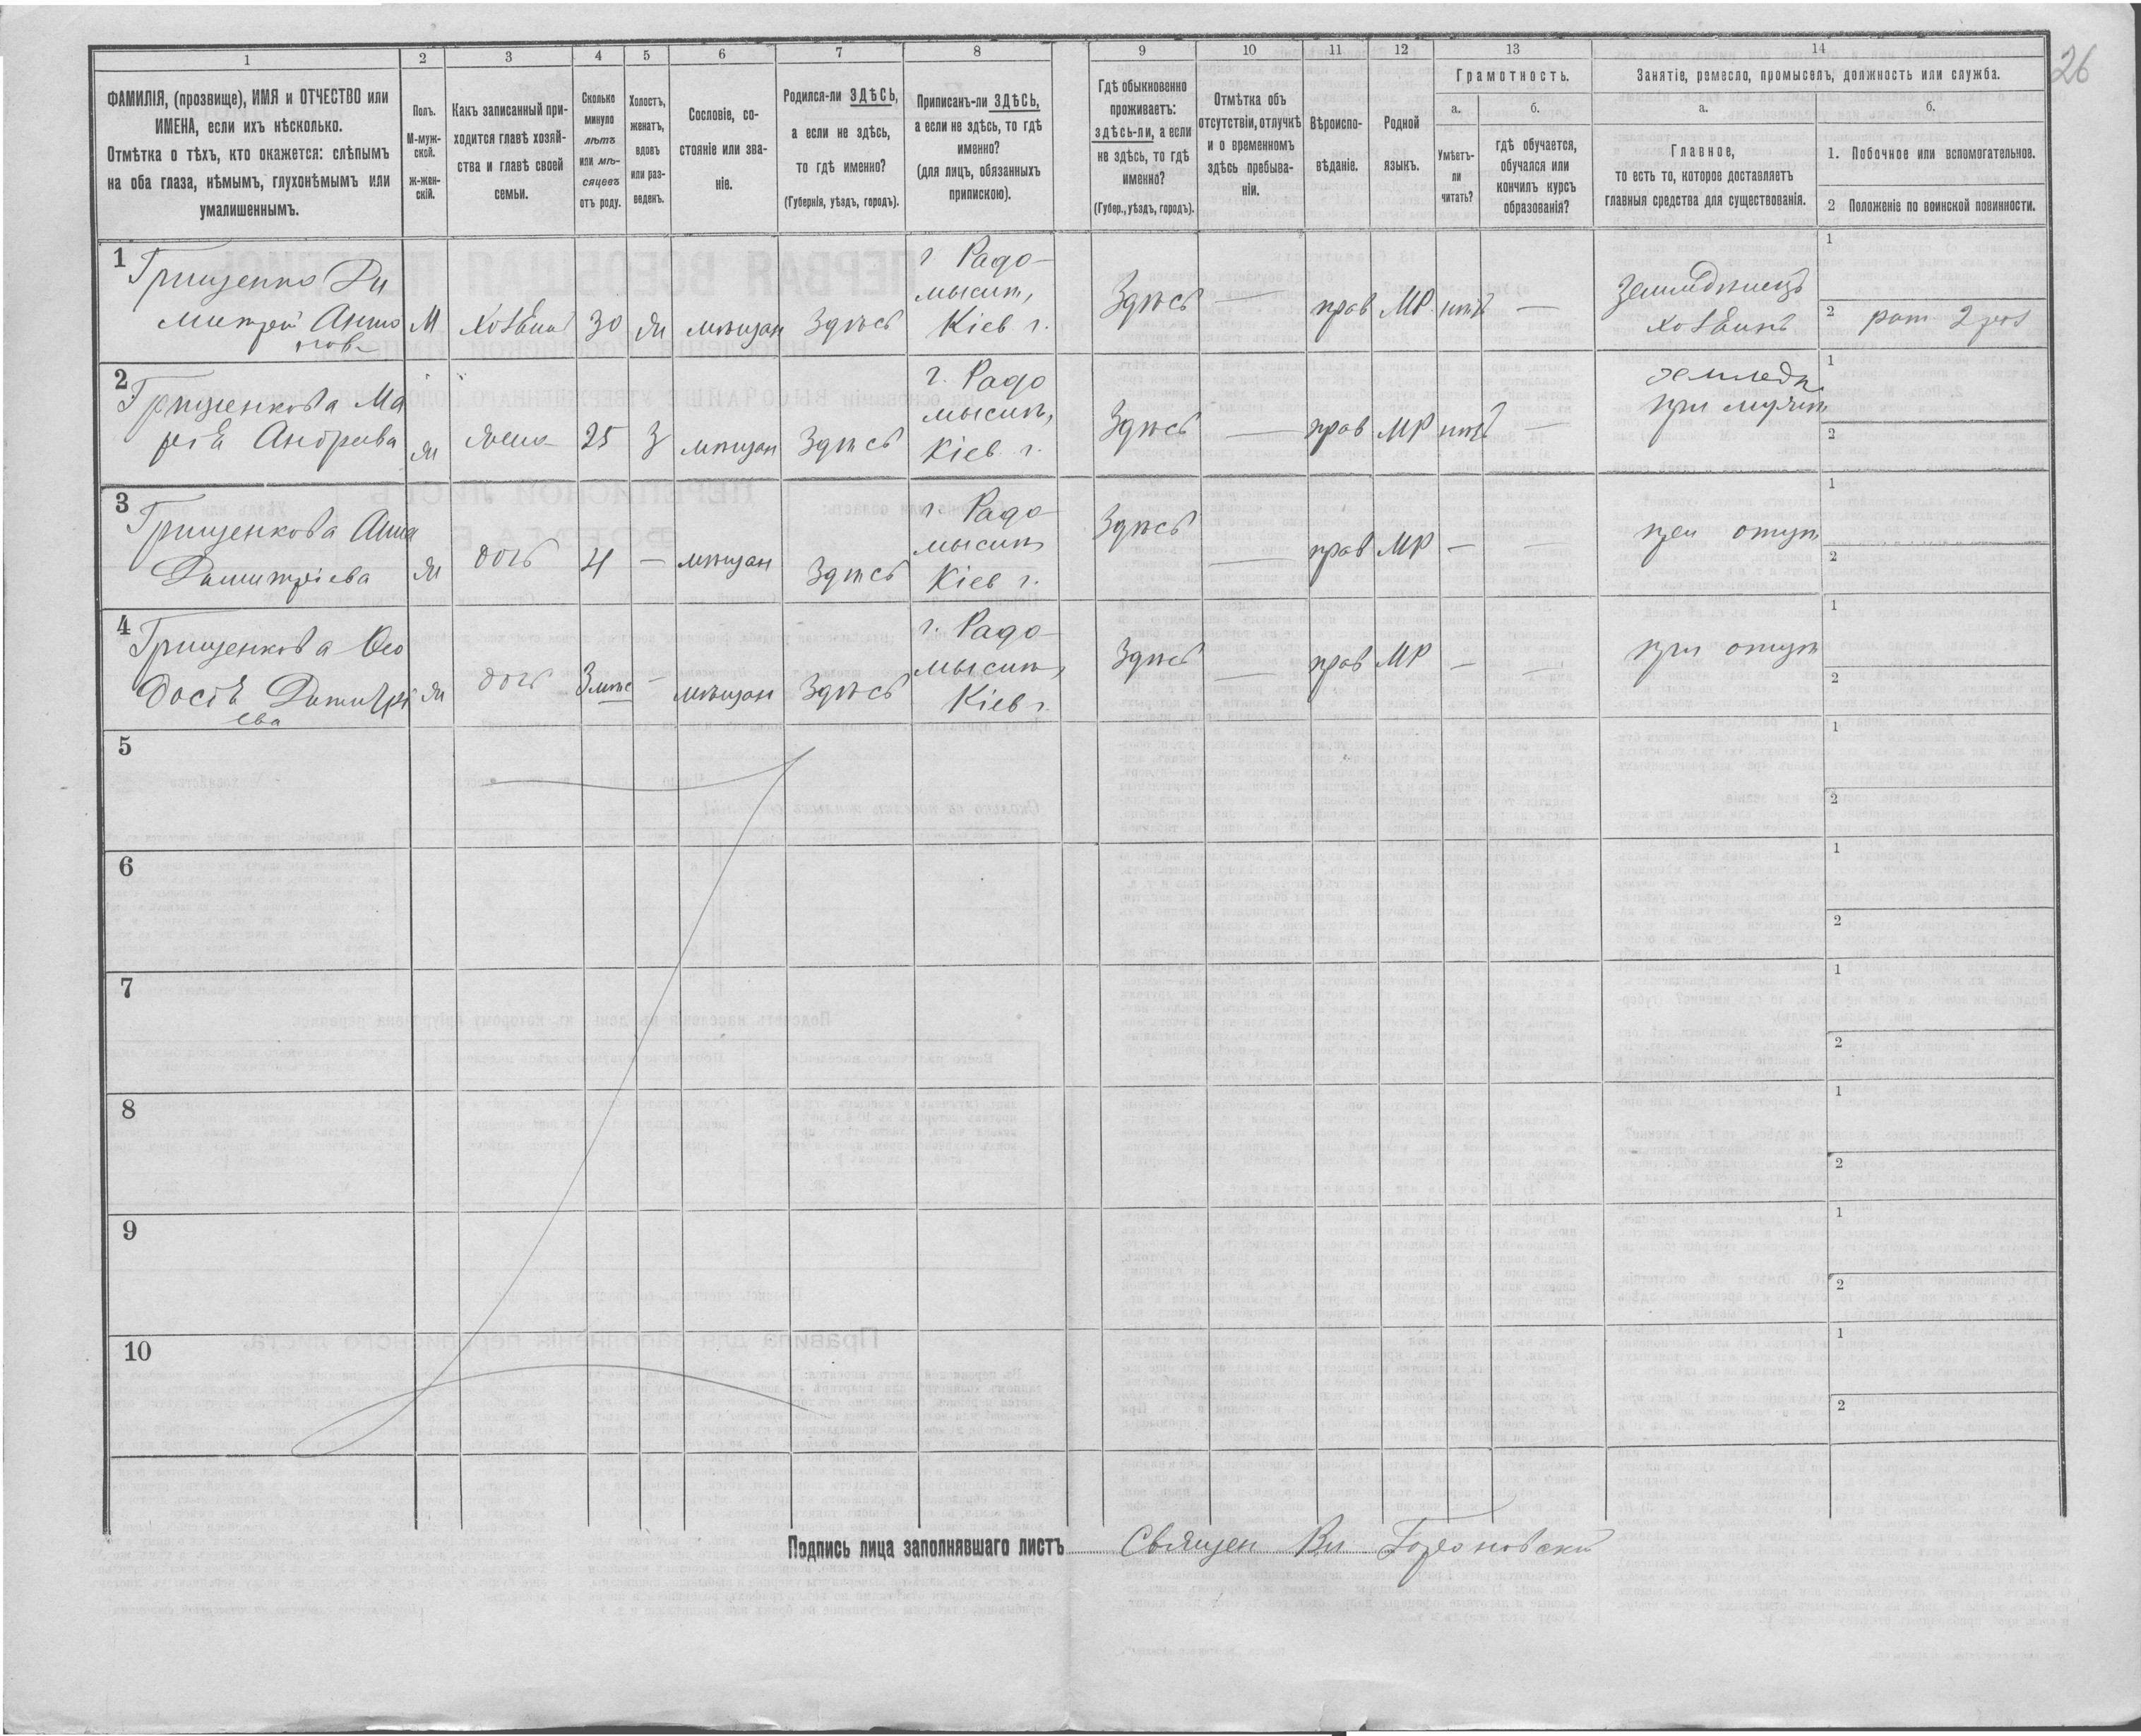 26
1 2 3 4 5 6 7 8 9 10 11 12 13 14
ФАМИЛІЯ, (прозвище), ИМЯ и ОТЧЕСТВО или
ИМЕНА, если ихъ нѣсколько.
Отмѣтка о тѣхъ, кто окажется: слѣпымъ
на оба глаза, нѣмымъ, глухонѣмымъ или
умалишеннымъ.
Полъ.
М-муж-
ской.
ж-жен-
скій.
Какъ записанный при-
ходится главѣ хозяй-
ства и главѣ своей
семьи.
Сколько
минуло
лѣтъ
или мѣ-
сяцевъ
отъ роду.
Холостъ,
женатъ,
вдовъ
или раз-
веденъ.
Сословіе, со-
стояніе или зва-
ніе.
Родился-ли ЗДѢСЬ,
а если не здѣсь,
то гдѣ именно?
(Губернія, уѣздъ, городъ).
Приписанъ-ли ЗДѢСЬ,
а если не здѣсь, то гдѣ
именно?
(для лицъ, обязанныхъ
припискою).
Гдѣ обыкновенно
проживаетъ:
здѣсь-ли, а если
не здѣсь, то гдѣ
именно?
(Губер., уѣздъ, городъ).
Отмѣтка объ
отсутствіи, отлучкѣ
и о временномъ
здѣсь пребыва-
ніи.
Вѣроиспо-
вѣданіе.
Родной
языкъ.
Грамотность.
а.
Умѣетъ-
ли
читать?
б.
гдѣ обучается,
обучался или
кончилъ курсъ
образованія?
Занятіе, ремесло, промыселъ, должность или служба.
а.
Главное,
то есть то, которое доставляетъ
главныя средства для существованія.
б.
1. Побочное или вспомогательное.
2 Положеніе по воинской повинности.
1
Грищенко Ди
митрій Анто
нов
М
хозяинъ
30
ж
мѣщан
Здѣсь
г Радо-
мысит,
Кіев г.
Здѣсь
—
прав
МР
нѣтъ
—
Земледѣлецъ
хозяинъ
1
2
рат 2 раз
2
Грищенкова Ма
рія Андрѣева
ж
жена
25
З
мѣщан
Здѣсь
г. Радо
мысит,
Кіев. г.
Здѣсь
—
прав
МР
нѣтъ
—
земледѣ
при мужѣ
1
2
3
Грищенкова Анна
Димитріева
ж
дочь
4
—
мѣщан
Здѣсь
г. Радо-
мысит
Кіев г.
Здѣсь
—
прав
МР
—
—
при отцѣ
1
2
4
Грищенкова Ѳео
досія Димитрі
ева
ж
дочь
3 мѣс
—
мѣщан
Здѣсь
г. Радо-
мысит,
Кіев г.
Здѣсь
—
прав
МР
—
—
при отцѣ
1
2
5
1
2
6
1
2
7
1
2
8
1
2
9
1
2
10
1
2
Подпись лица заполнявшаго листъ Священ Вл